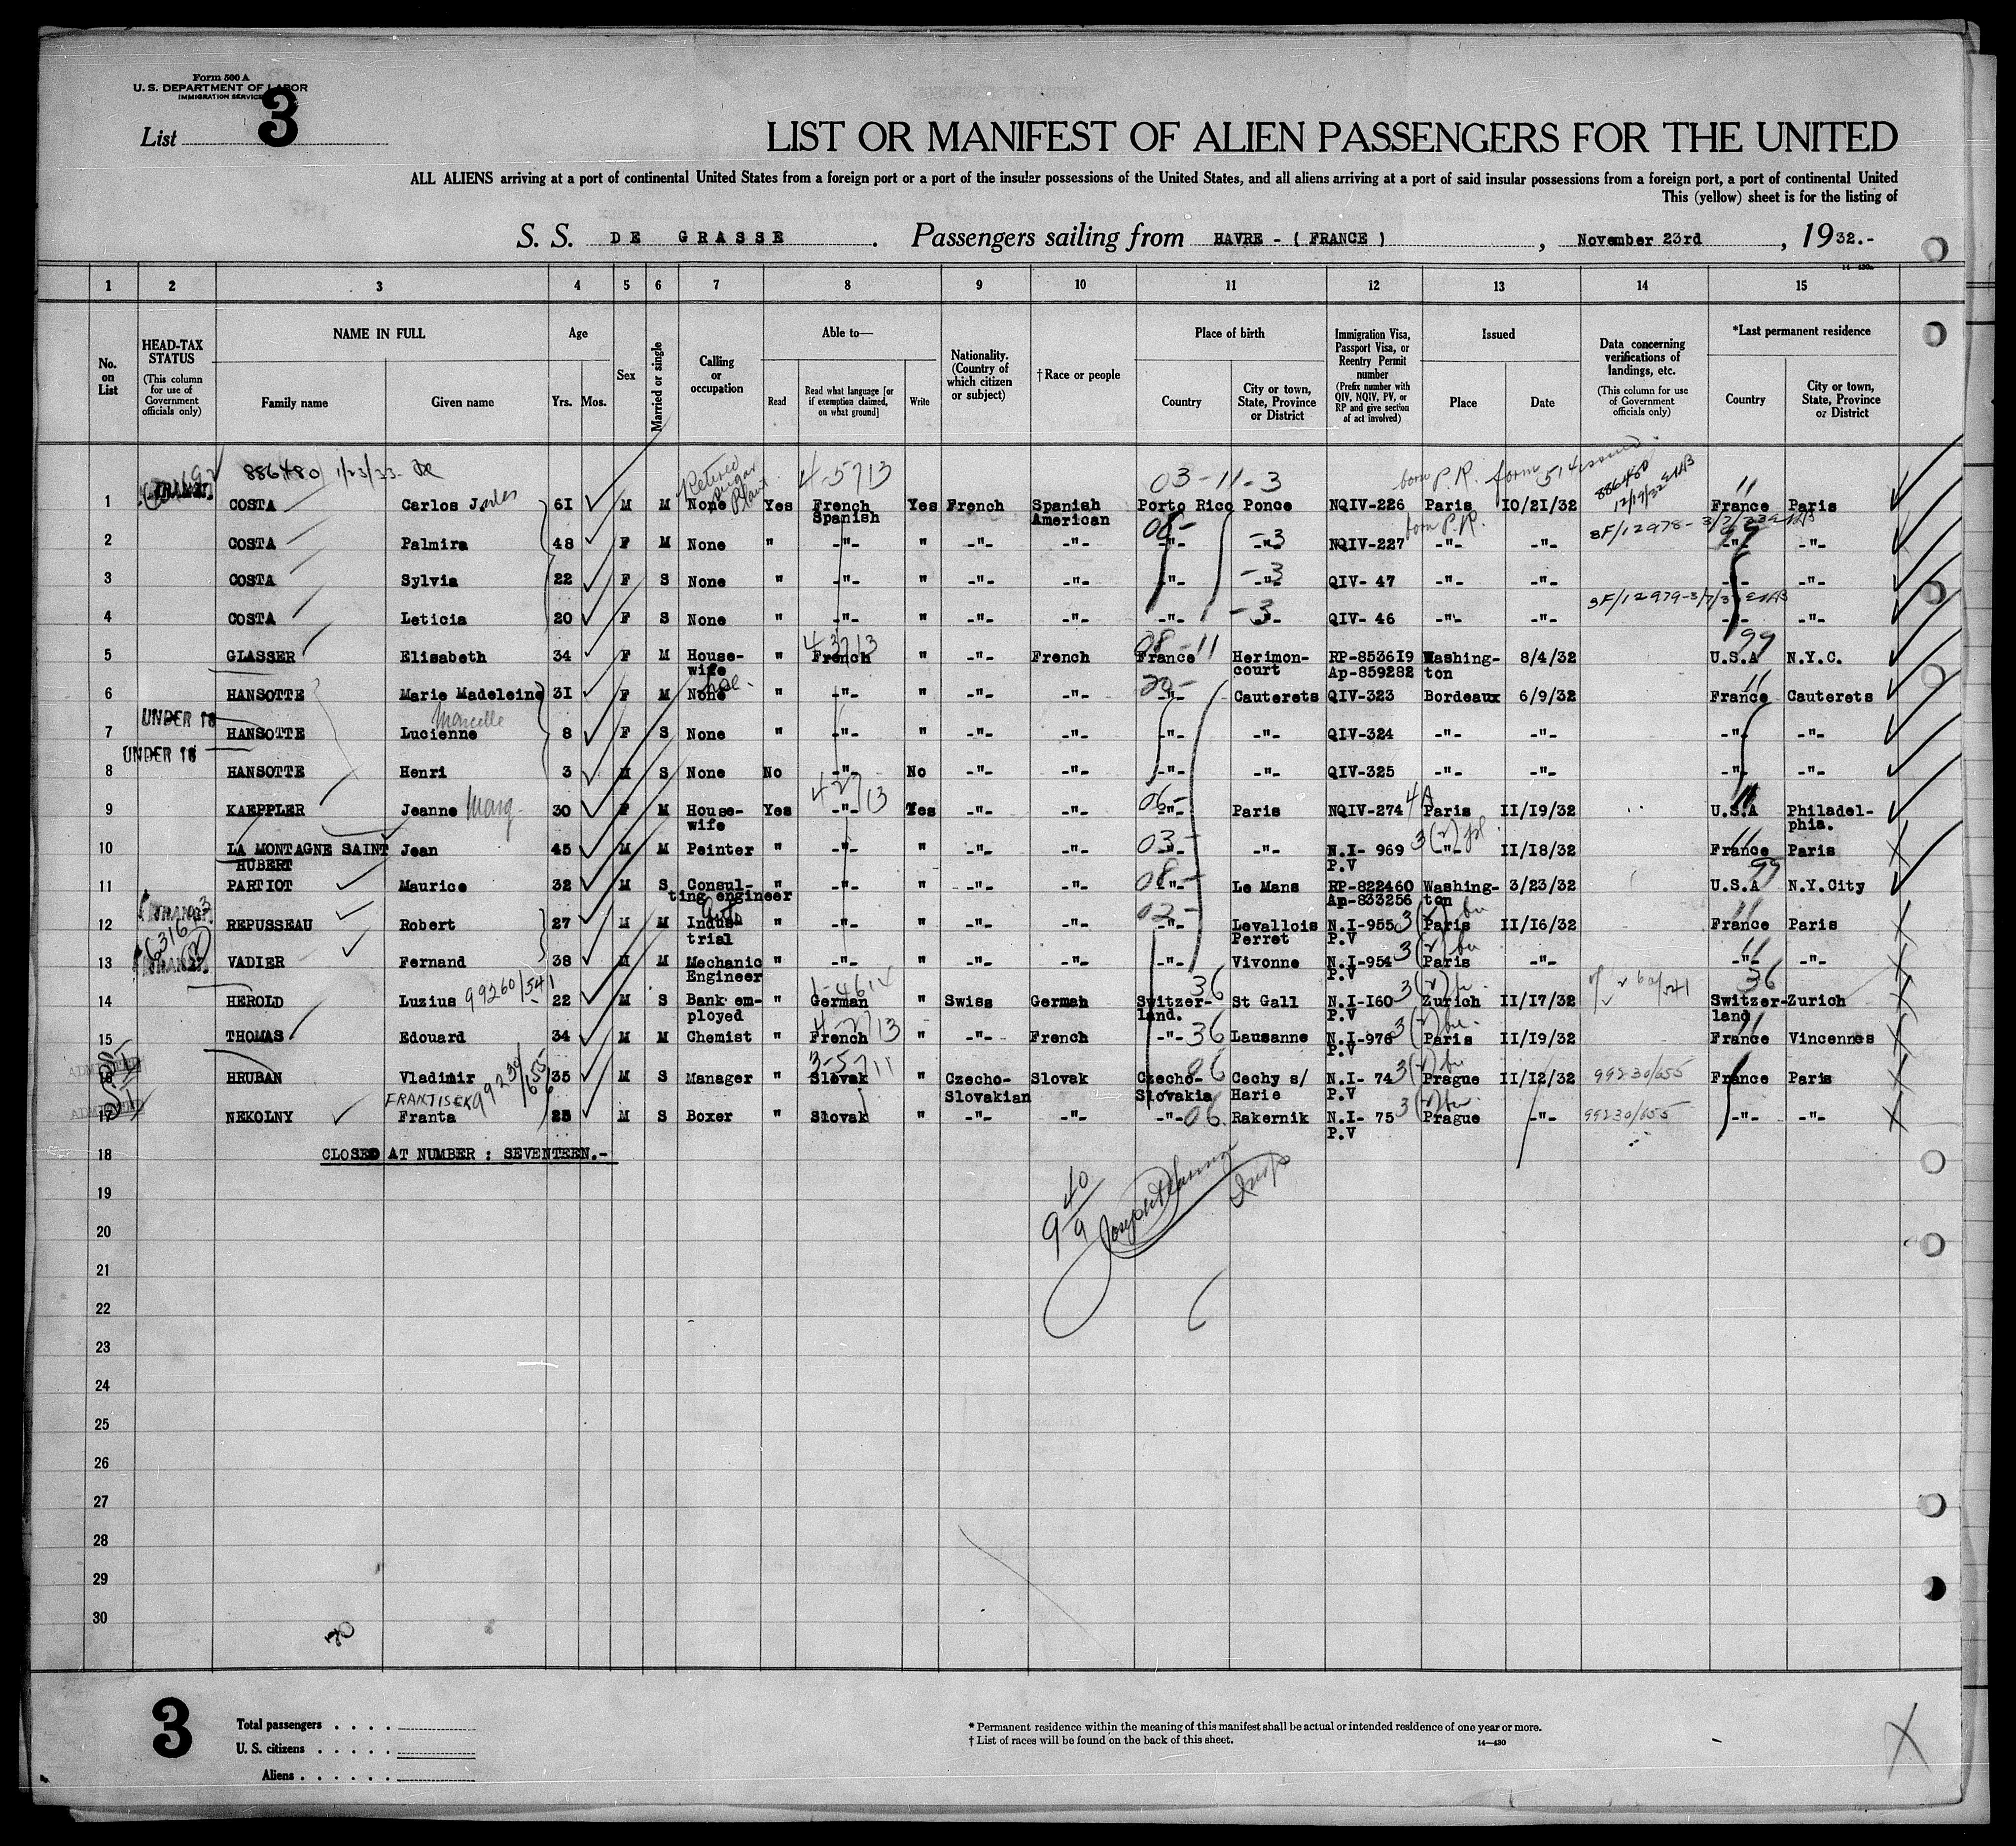 Form 500 A
U. S. DEPARTMENT OF LABOR
IMMIGRATION SERVICE
List 3
LIST OR MANIFEST OF ALIEN PASSENGERS FOR THE UNITED
ALL ALIENS arriving at a port of continental United States from a foreign port or a port of the insular possessions of the United States, and all aliens arriving at a port of said insular possessions from a foreign port, a port of continental United
This (yellow) sheet is for the listing of
S. S. DE GRASSE . Passengers sailing from HAVRE - ( FRANCE ) , November 23rd , 19 32.-
14—430a
1 2 3 4 5 6 7 8 9 10 11 12 13 14 15
No. on List
HEAD-TAX STATUS (This column for use of Government officials only)
NAME IN FULL
Family name Given name
Age
Yrs. Mos.
Sex
Married or single
Calling or occupation
Able to—
Read Read what language [or if exemption claimed, on what ground] Write
Nationality. (Country of which citizen or subject)
†Race or people
Place of birth
Country City or town, State, Province or District
Immigration Visa, Passport Visa, or Reentry Permit number (Prefix number with QIV, NQIV, PV, or RP and give section of act involved)
Issued
Place Date
Data concerning verifications of landings, etc. (This column for use of Government officials only)
*Last permanent residence
Country City or town, State, Province or District
886480 1/23/33 4-5713 03-11-3 born P.R. form 514 issued 886480 12/19/32
Retired sugar Plant
1 COSTA Carlos J 61 M M None Yes French Spanish Yes French Spanish American Porto Rico Ponce NQIV-226 Paris 10/21/32 France Paris
born P.R. SF/12978-
2 COSTA Palmira 48 F M None " -"- " -"- -"- -"- -"- NQIV-227 -"- -"- -"- -"-
3 COSTA Sylvia 22 F S None " -"- " -"- -"- -"- -"- QIV- 47 -"- -"- -"- -"-
SF/12979-3/7/3
4 COSTA Leticia 20 F S None " -"- " -"- -"- -"- -"- QIV- 46 -"- -"- -"- -"-
5 GLASSER Elisabeth 34 F M House-wife " French " -"- French France Herimon-court RP-853619 Ap-859282 Washing-ton 8/4/32 U.S.A N.Y.C.
6 HANSOTTE Marie Madeleine 31 F M None " -"- " -"- -"- -"- Cauterets QIV-323 Bordeaux 6/9/32 France Cauterets
UNDER 16 Marcelle
7 HANSOTTE Lucienne 8 F S None " -"- " -"- -"- -"- -"- QIV-324 -"- -"- -"- -"-
UNDER 16
8 HANSOTTE Henri 3 M S None No -"- No -"- -"- -"- -"- QIV-325 -"- -"- -"- -"-
9 KAEPPLER Jeanne Marg 30 F M House-wife Yes -"- Yes -"- -"- -"- Paris NQIV-274 Paris 11/19/32 U.S.A Philadel-phia.
10 LA MONTAGNE SAINT HUBERT Jean 45 M M Peinter " -"- " -"- -"- -"- -"- N.I- 969 P.V -"- 11/18/32 France Paris
11 PARTIOT Maurice 32 M S Consul-ting engineer " -"- " -"- -"- -"- Le Mans RP-822460 Ap-833256 Washing-ton 3/23/32 U.S.A N.Y.City
12 REPUSSEAU Robert 27 M M Indus-trial " -"- " -"- -"- -"- Levallois Perret N.I-955 P.V Paris 11/16/32 France Paris
13 VADIER Fernand 38 M M Mechanic Engineer " -"- " -"- -"- -"- Vivonne N.I-954 P.V Paris -"- -"- -"-
14 HEROLD Luzius 99260/541 22 M S Bank em-ployed " German " Swiss German Switzer-land. St Gall N.I-160 P.V Zurich 11/17/32 Switzer-land Zurich
15 THOMAS Edouard 34 M M Chemist " French " -"- French -"- 36 Lausanne N.I-976 P.V Paris 11/19/32 France Vincennes
16 HRUBAN Vladimir 35 M S Manager " Slovak " Czecho-Slovakian Slovak Czecho-Slovakia Cechy s/ Harie N.I- 74 P.V Prague 11/12/32 99230/655 France Paris
FRANTISEK 99230/655
17 NEKOLNY Franta 25 M S Boxer " Slovak " -"- -"- -"- 06 Rakernik N.I- 75 P.V Prague -"- 99230/655 -"- -"-
18 CLOSED AT NUMBER : SEVENTEEN.-
19
20
21
22
23
24
25
26
27
28
29
30
3
Total passengers . . . .
U. S. citizens . . . . .
Aliens . . . . . .
* Permanent residence within the meaning of this manifest shall be actual or intended residence of one year or more.
† List of races will be found on the back of this sheet.
14—430